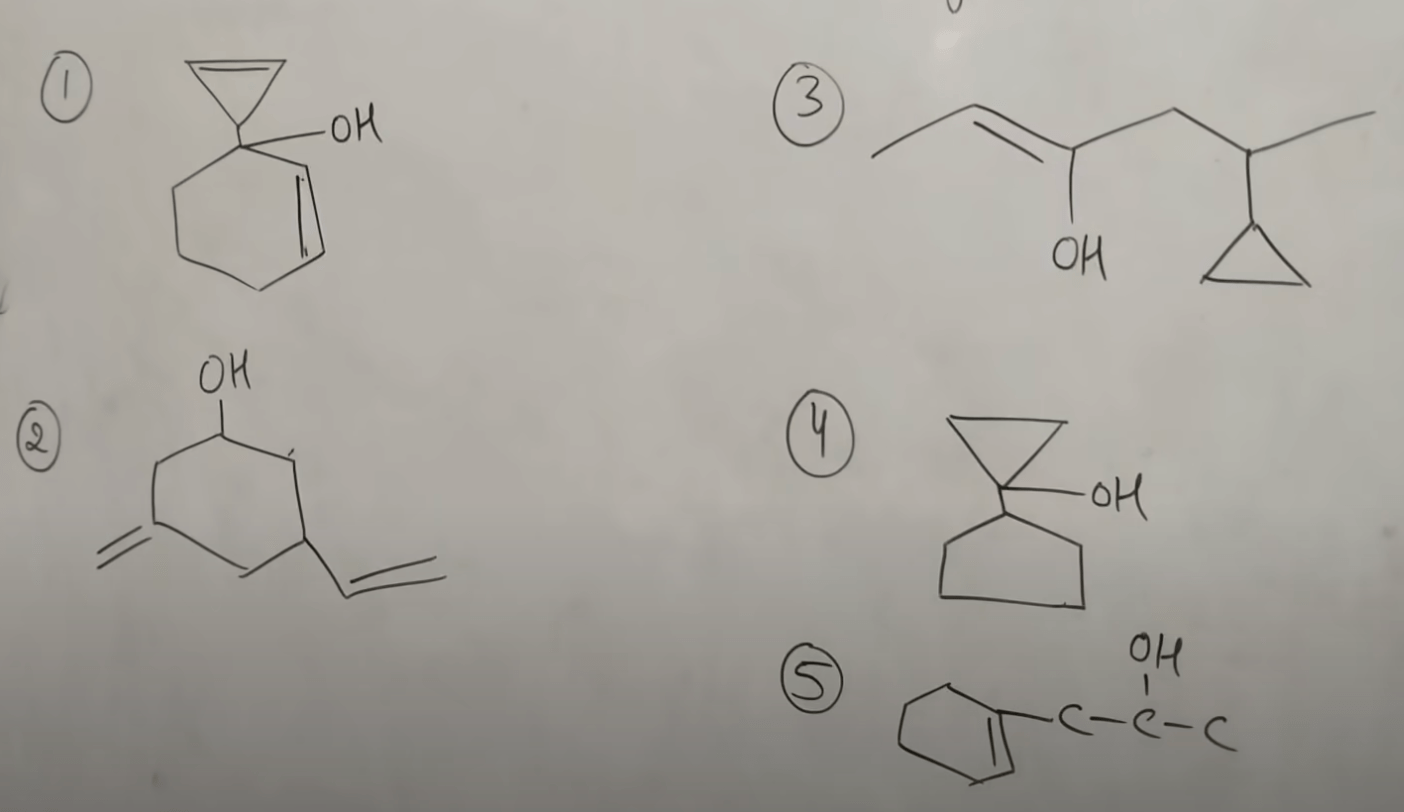 1
OH
2
OH
3
OH
4
OH
5
OH
C-C-C